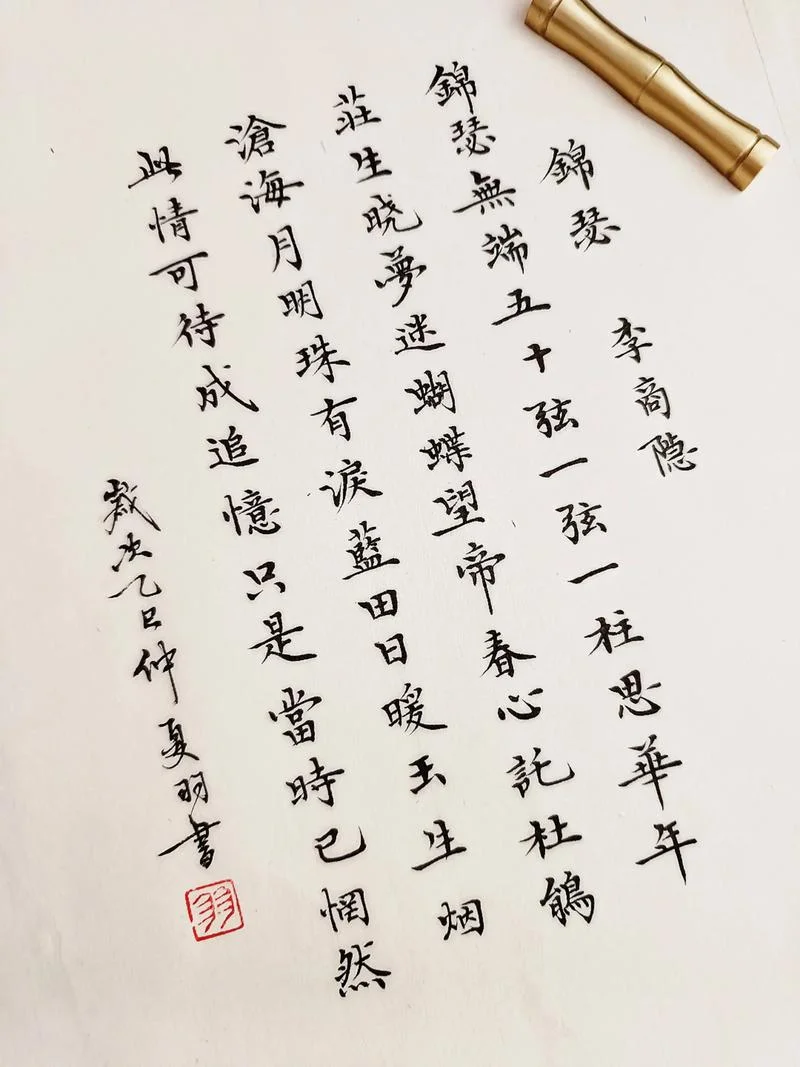 錦瑟
李商隐
錦瑟無端五十弦一弦一柱思華年
莊生晓夢迷蝴蝶望帝春心託杜鵑
滄海月明珠有淚藍田日暖玉生烟
此情可待成追憶只是當時已惘然
歲次乙巳仲夏羽書
羽